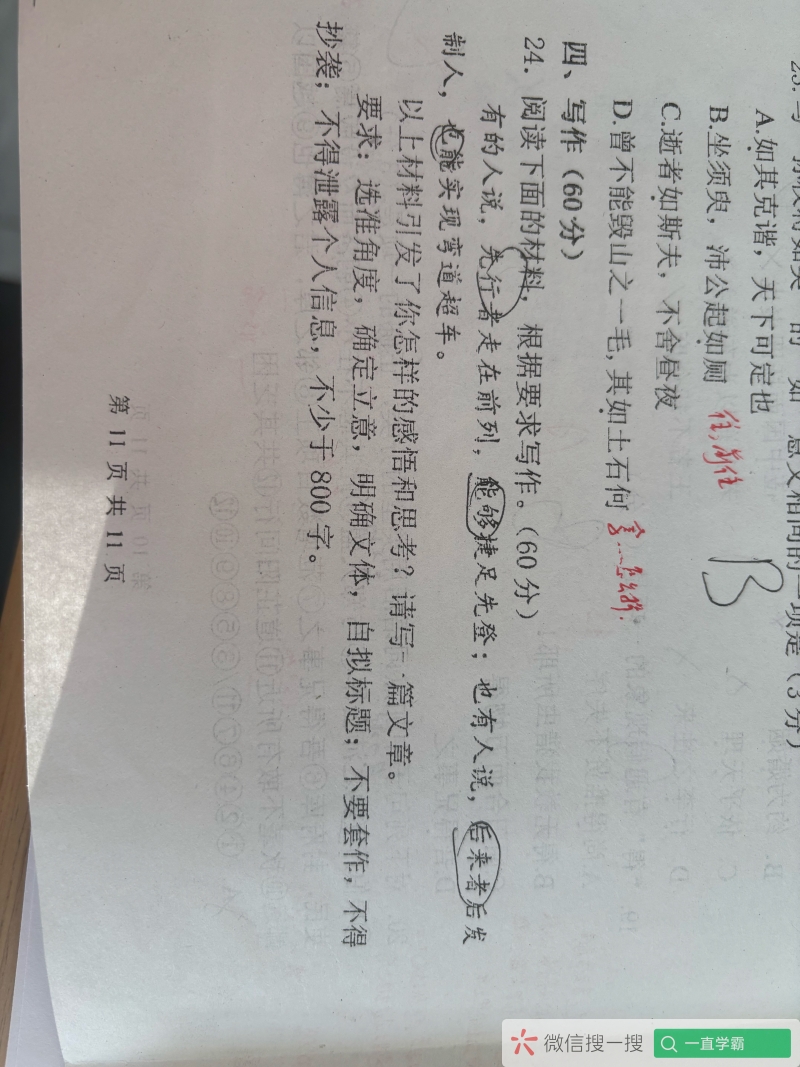 A.如其克谐，天下可定也
B.坐须臾，沛公起如厕 往，前往
C.逝者如斯夫，不舍昼夜
D.曾不能毁山之一毛，其如土石何
B
四、写作（60分）
24. 阅读下面的材料，根据要求写作。（60分）
有的人说，先行者走在前列，能够捷足先登；也有人说，后来者后发
制人，也能实现弯道超车。
以上材料引发了你怎样的感悟和思考？请写一篇文章。
要求：选准角度，确定立意，明确文体，自拟标题；不要套作，不得
抄袭；不得泄露个人信息，不少于800字。
第 11 页 共 11 页
微信搜一搜
一直学霸